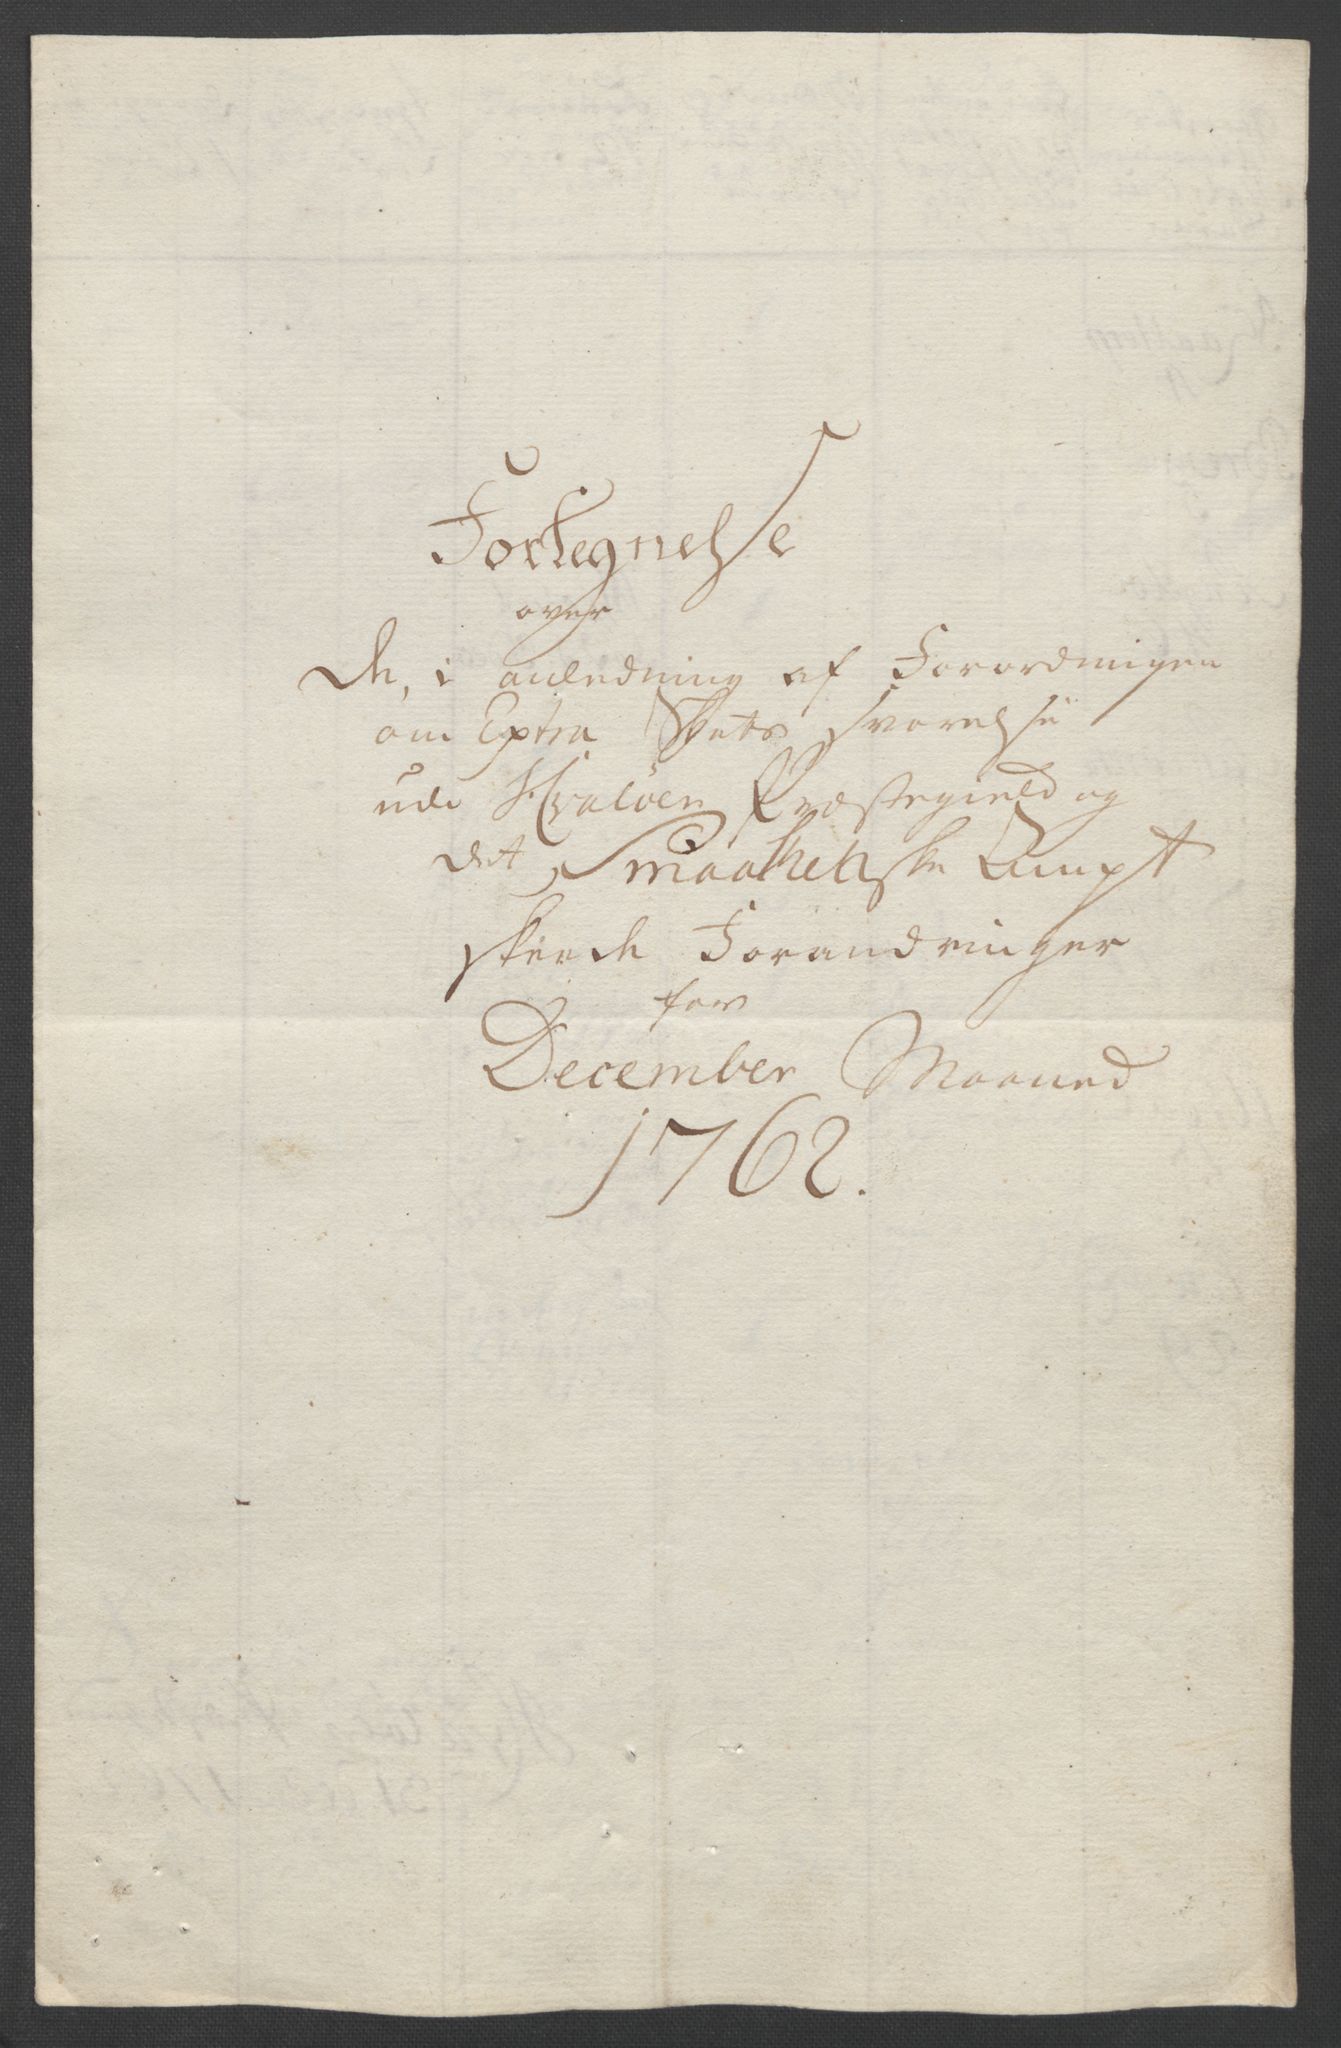 Fortegnelse
over
de, i anledning af Forordningen
om Extra Skatts svarelse
udi Hvaløer Præstegield og
det Smaalehnske Ampt
skeede Forandringer
for
December Maaned
1762.